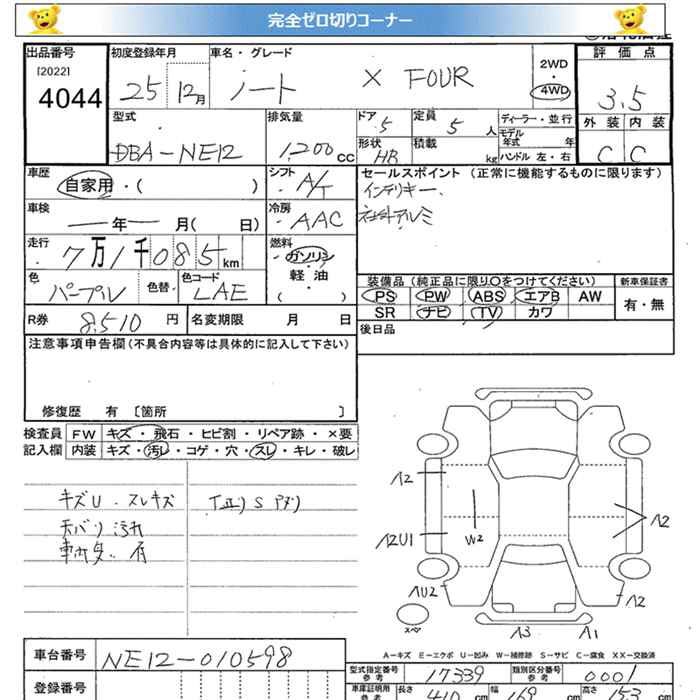 完全ゼロ切りコーナー
出品番号
[2022]
4044
初度登録年月
25 12月
車名・グレード
ノート X FOUR
2WD
4WD
評価点
3.5
外装 内装
C C
型式
DBA-NE12
排気量
1,200 cc
ドア
5
定員
5 人
形状
HB
積載
kg
ディーラー・並行
モデル
年式 年
ハンドル 左・右
車歴
自家用・( )
シフト
A/T
車検
年 月( 日)
冷房
AAC
セールスポイント (正常に機能するものに限ります)
インテリキー、
社外アルミ
走行
7万1千085km
燃料
ガソリン
軽・油
( )
色
パープル
色替
色コード
LAE
装備品(純正品に限り○をつけてください)
新車保証書
PS PW ABS エアB AW
有・無
SR ナビ TV カワ
R券 8,510 円
名変期限 月 日
後日品
注意事項申告欄(不具合内容等は具体的に記入して下さい)
修復歴 有 [箇所 ]
検査員 FW キズ・飛石・ヒビ割・リペア跡・×要
記入欄 内装 キズ・汚レ・コゲ・穴・スレ・キレ・破レ
キズU・スレキズ
天バリ汚れ
A2
A2U1
W2
A2
AU2
A2
A3
A1
スペア
A-キズ E-エクボ U-凹み W-補修跡 S-サビ C-腐食 XX-交換済
車台番号 NE12-010598
登録番号
型式指定番号
参考
17339
類別区分番号
参考
0001
車庫証明用
参考
長さ
410 cm
幅
169 cm
高さ
153 cm